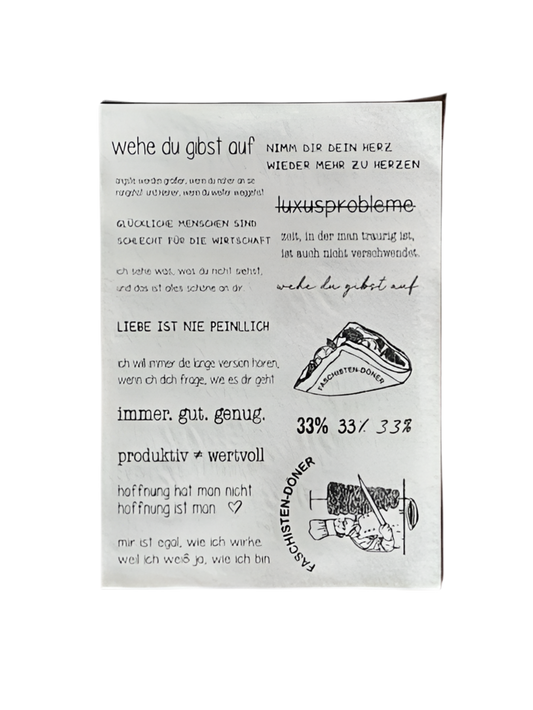 wehe du gibst auf
ängste werden größer, wenn du näher an sie
rangehst und kleiner, wenn du weiter weggehst
GLÜCKLICHE MENSCHEN SIND
SCHLECHT FÜR DIE WIRTSCHAFT
ich sehe was, was du nicht siehst,
und das ist alles schöne an dir.
LIEBE IST NIE PEINLLICH
ich will immer die lange version hören,
wenn ich dich frage, wie es dir geht
immer. gut. genug.
produktiv ≠ wertvoll
hoffnung hat man nicht
hoffnung ist man ♡
mir ist egal, wie ich wirke
weil ich weiß ja, wie ich bin
NIMM DIR DEIN HERZ
WIEDER MEHR ZU HERZEN
luxusprobleme
zeit, in der man traurig ist,
ist auch nicht verschwendet.
wehe du gibst auf
FASCHISTEN-DÖNER
33% 33% 33%
FASCHISTEN-DÖNER